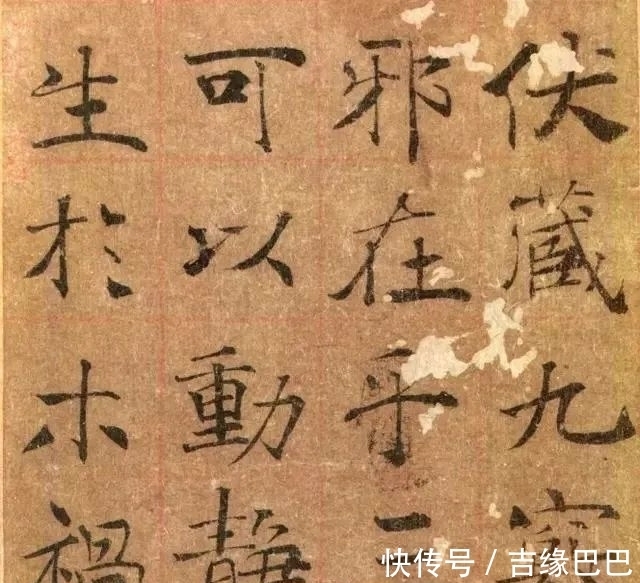 伏藏九
邪在乎
可以動靜
生於木禍
快传号 / 吉缘巴巴